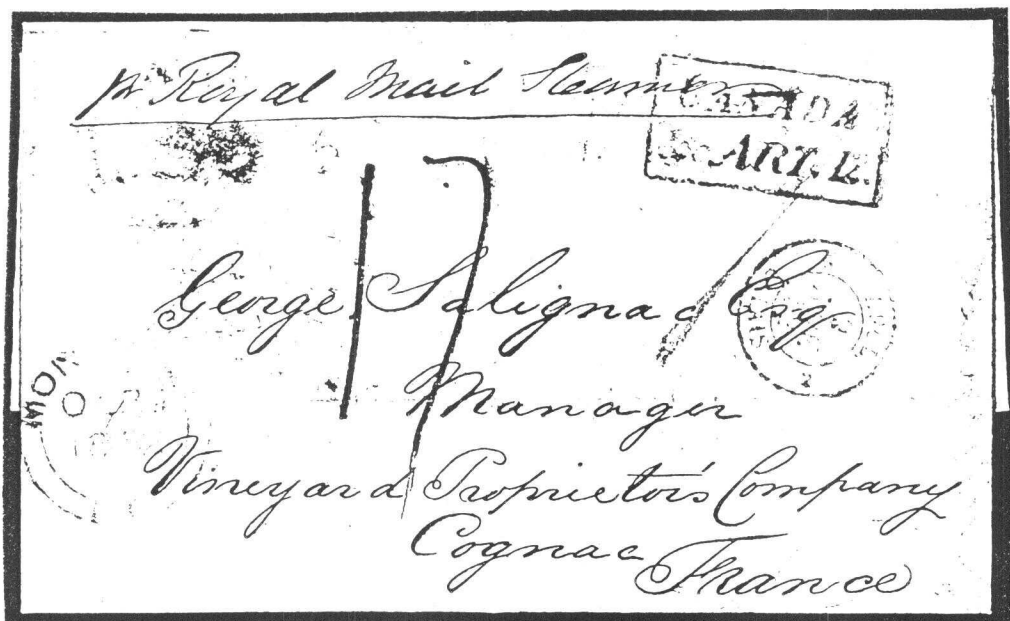 pr Royal Mail Steamer
CANADA
ART. 12.
17
George Salignac Esq
Manager
Vineyard Proprietors Company
Cognac
France